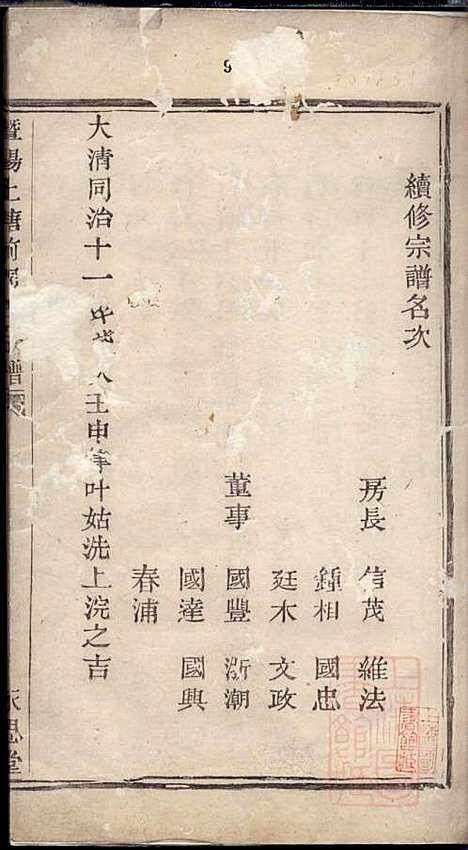 9
續修宗譜名次
房長 信茂 維法
鍾相 國忠
廷木 文政
董事 國豐 浙潮
國達 國興
春浦
大清同治十一 壬申年叶姑洗上浣之吉
暨陽上 譜
思堂